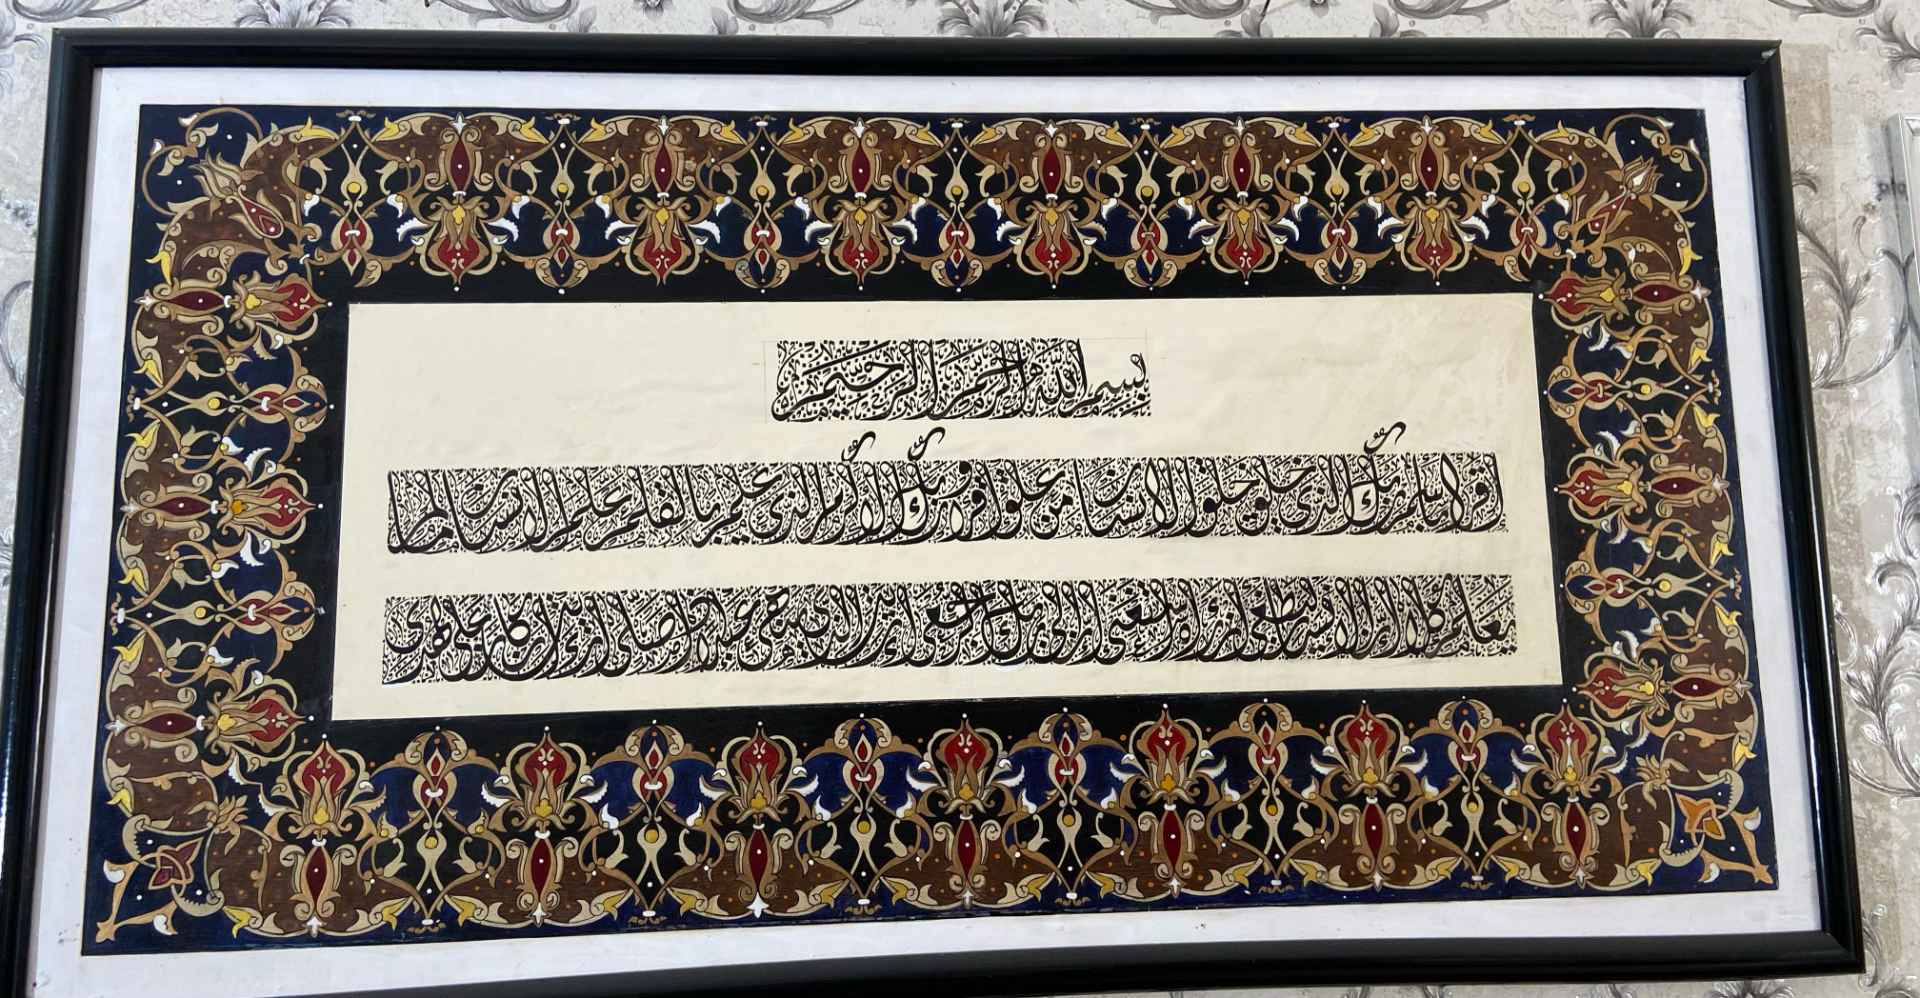 بسم الله الرحمن الرحيم
اقرا باسم ربك الذي خلق خلق الانسان من علق اقرا وربك الاكرم الذي علم بالقلم علم الانسان ما لم
يعلم كلا ان الانسان ليطغى ان راه استغنى ان الى ربك الرجعى ارايت الذي ينهى عبدا اذا صلى ارايت ان كان على الهدى